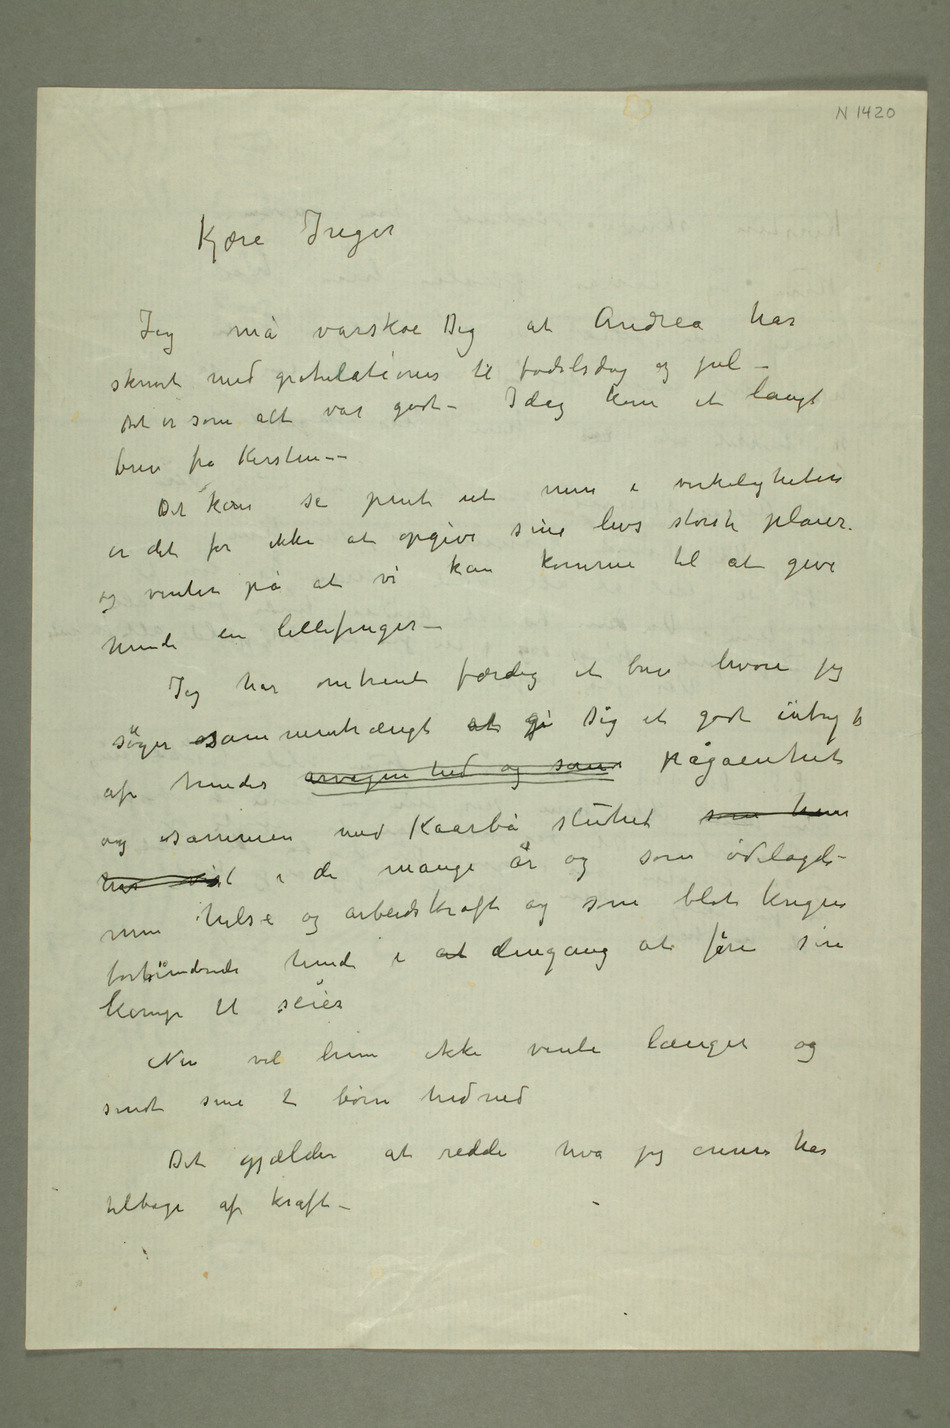 N 1420
Kjære Inger
Jeg må varskoe Dig at Andrea har
skrevet med gratulationer til fødselsdag og jul –
Det er som alt var godt – Idag kom et langt
brev fra Kirsten – –
Det kan se pent ut men i virkeligheten
er det for ikke at opgive sine livs største planer.
og venter på at vi kan komme til at give
hende en lillefinger –
Jeg har omtrent færdig et brev hvori jeg
søger sammentrængt at gi Dig et godt intryk
af hendes og som pågåenhet
og sammen med Kaarbø sluhet som hun
har vist i de mange år og som ødelagde
min helse og arbeidskraft og som blot krigen
forhindrede hende i at dengang at føre sin
kamp til seier
Nu vil hun ikke vente længer og
sendt sine 2 børn hedned
Det gjælder at redde hva jeg ennu har
tilbage af kraft –